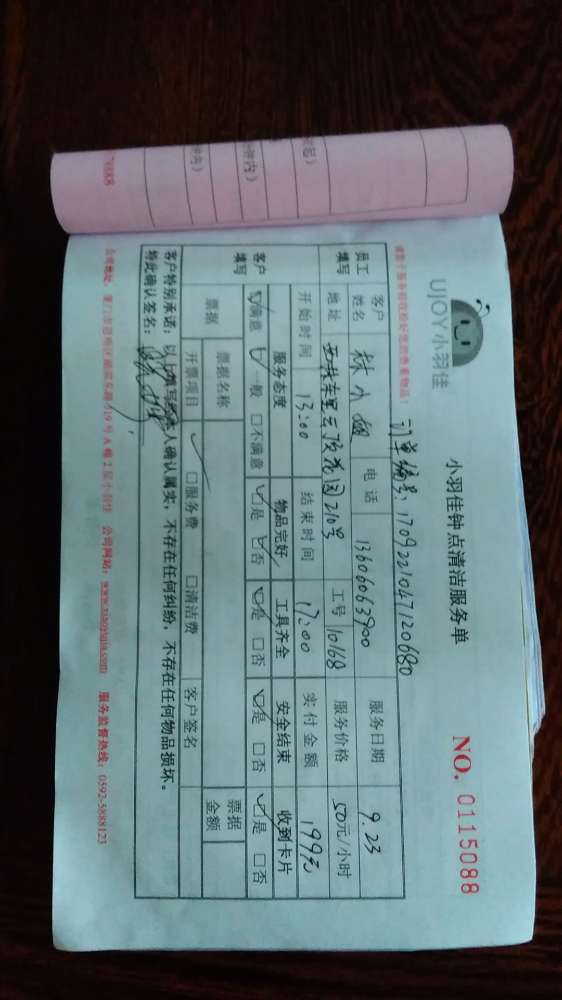 UJOY小羽佳
小羽佳钟点清洁服务单
NO. 0115088
订单编号：1709221047120680
员工填写 客户姓名 林小姐 电话 13606063900 服务日期 9.23
地址 云顶花园210号 工号 10168 服务价格 50元/小时
开始时间 13:00 结束时间 17:00 实付金额 199元
客户填写 服务态度 物品完好 工具齐全 安全结束 收到卡片
☑满意 一般 □不满意 ☑是 否 ☑是 □否 ☑是 □否 ☑是 □否
票据 票据名称 票据金额
开票项目 □服务费 □清洁费 客户签名
客户特别承诺：以上填写经本人确认属实，不存在任何纠纷，不存在任何物品损坏。
特此确认签名：
公司网站：www.xiaoyujia.com 服务监督热线：0592-5888123